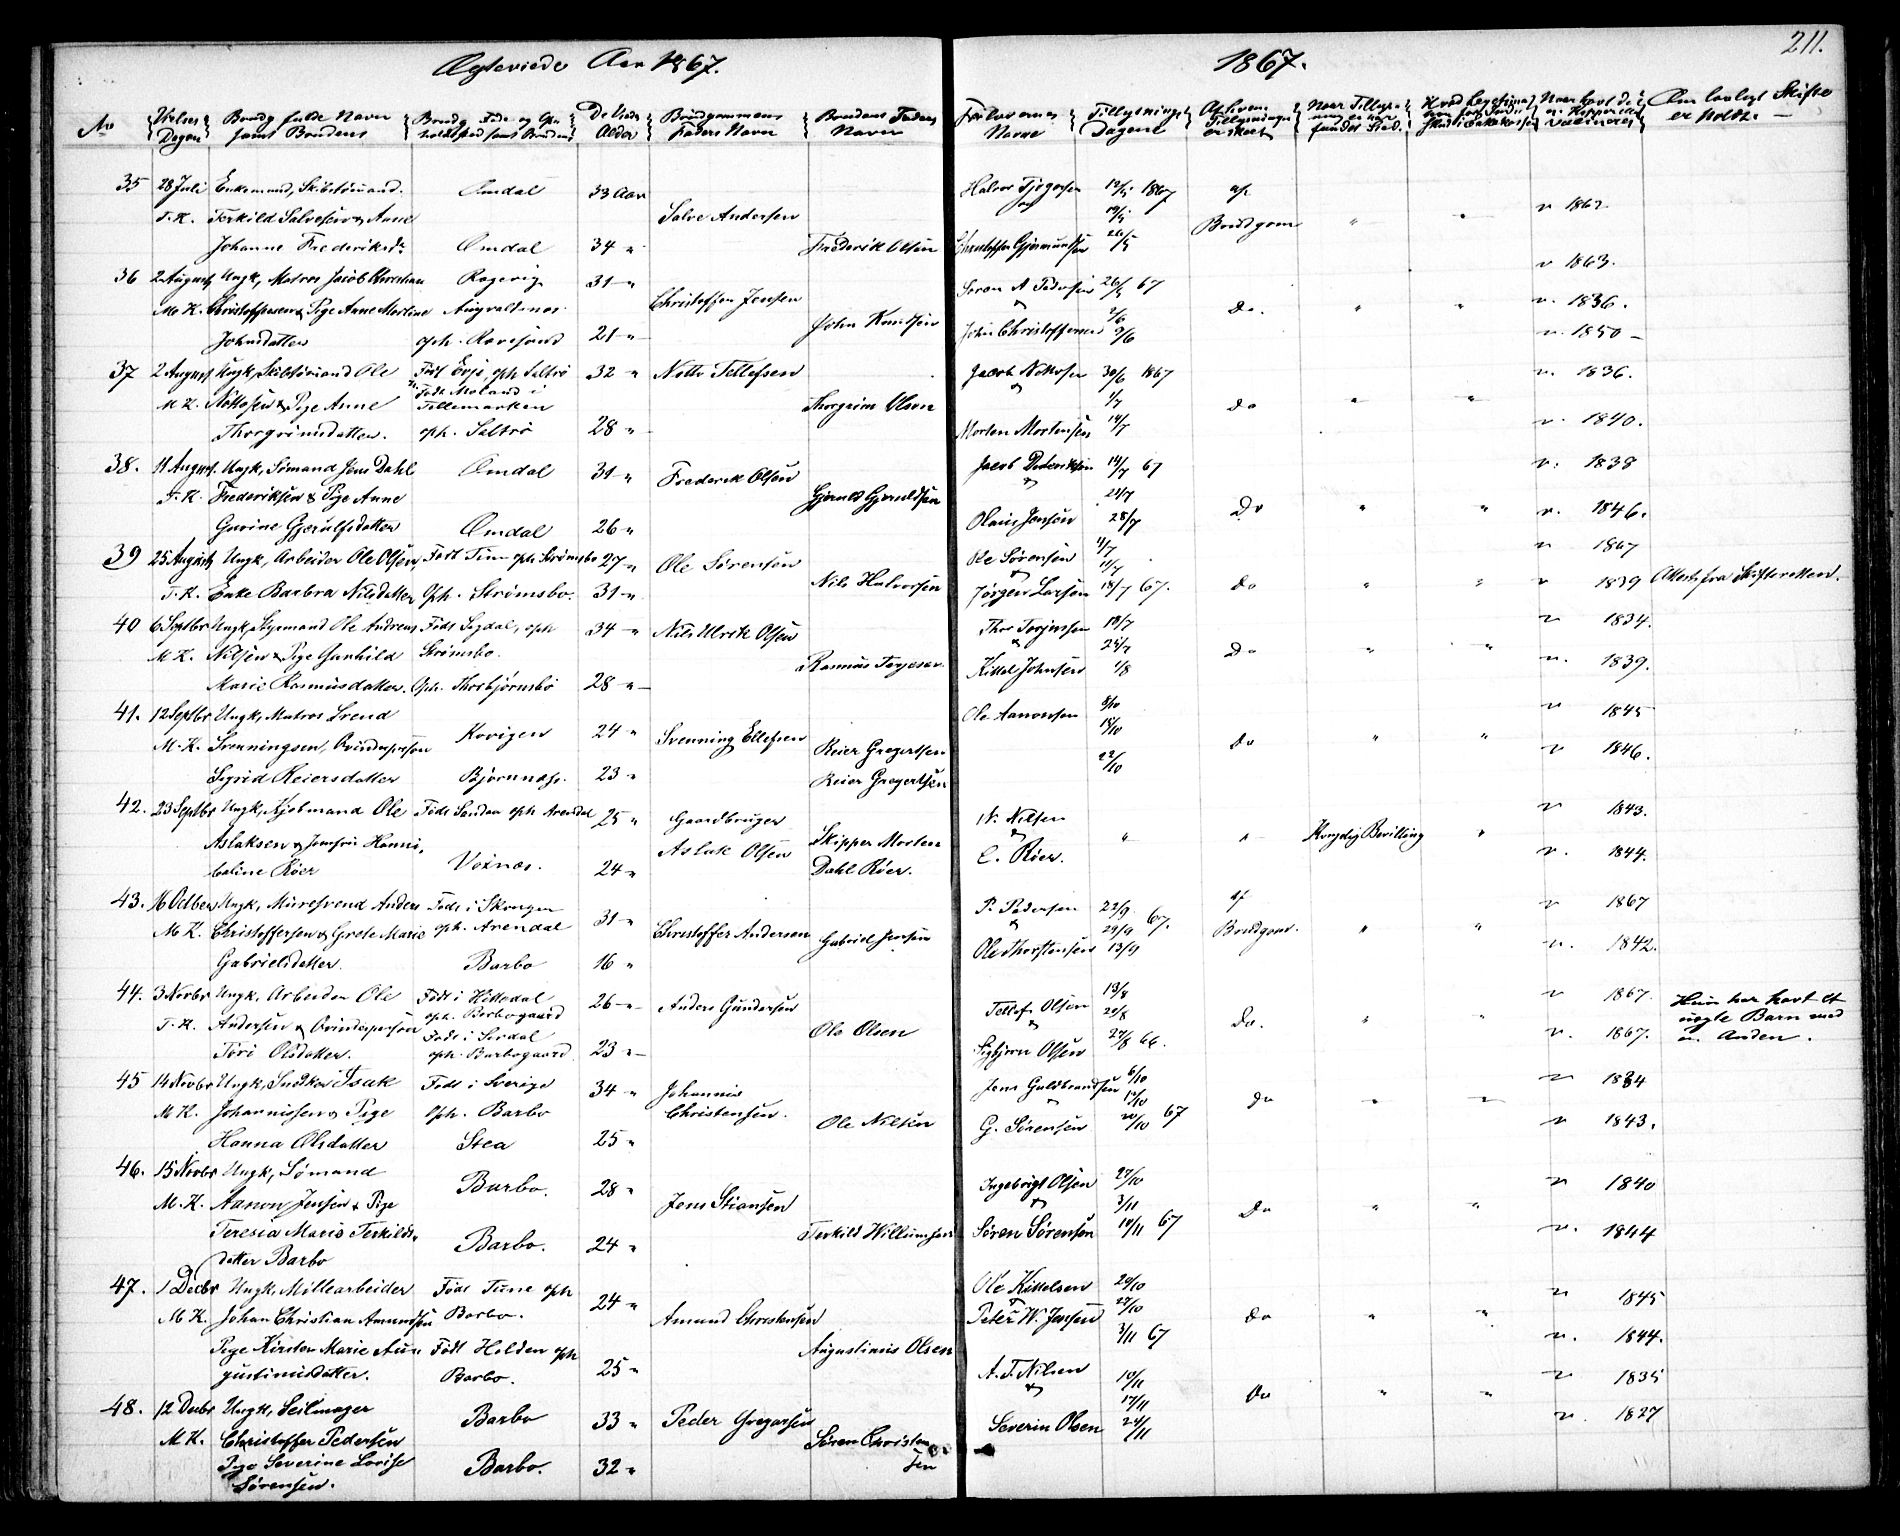 Ægteviede Aar 1867.
1867.
211.
No
Vielses Dagen
Brudg. fulde Navn samt Brudens
Brudg. Føde og Op-holdssted samt Brudens
De Viedes Alder
Brudgommens Faders Navn
Brudens Faders Navn
Forlovernes Navne
Tillysnings Dagene
Naar havt de n. Kopper eller vaccineret
Om lovligt Skifte er holdt.
35 28 Juli Enkemand, Skibstømmand. Omdal 33 Aar Halvor Tjøgersen 12/5 1867 af
T. K. Terkild Salvesen & Anne Salve Andersen og 19/5 Brudgom " " v 1862
Johanne Frederiksdr. Omdal 34 " Frederik Olsen Christoffer Gjermundsen 26/5
v 1863.
36 2 August Ungk, Matros Jacob Christian Ragevig 31 " Søren A Pedersen 26/5 67
M. K. Christoffersen & Pige Anne Martine Augvaldsnes. Christoffer Jensen & 2/6 Do. " " v. 1836.
Johnsdatter oph. Revesand 21 " John Knudsen John Christoffersen 9/6 v. 1850 -
37 2 August Ungk, Skibstømmand Ole Født Evje, oph Saltrø 32 " Notto Tellefsen Jacob Nottosen 30/6 1867 v. 1836.
M. K. Nottosen & Pige Anne Født Moland i Tellemarken Thorgrim Olsen & 7/7 Do " "
Thorgrimsdatter. oph. Saltrø 28 " Morten Mortensen 14/7 v. 1840.
38. 11 August. Ungk, Sømand Jens Dahl Omdal 31 " Frederik Olsen Jacob Dideriksen 14/7 67 v. 1838
T. K. Frederiksen & Pige Anne & 21/7
Gurine Gjerulfsdatter Omdal 26 " Gjeruld Gjeruldsen Olaus Jensen 28/7 Do " " v. 1846.
39 25 August Ungk, Arbeider Ole Olsen, Født Tinn oph Strømsbo 27 " Ole Sørensen Ole Sørensen 4/7 v 1867
T. K. Enke Barbra Nilsdatter Oph. Strømsbo. 31 " Nils Halvorsen & Jørgen Larsen 11/7 18/7 67. Do " " v 1839 Attest fra Skifteretten.
40 6 Septbr Ungk, Styrmand Ole Andreas Født Sogdal, oph 34 " Nils Ulrik Olsen Thor Torjussen 18/7 v 1834.
M. K. Nilsen & Pige Gunhild Strømsbo. Rasmus Terjesen & 25/7 Do " "
Marie Rasmusdatter. Oph. Thorbjørnsbo 28 " Kittel Johnsen 1/8 v. 1839.
41. 12 Septbr Ungk, Matros Svend 24 " Ole Aanonsen 8/10 v 1845
M. K. Svenningsen, Qvindeperson Kovigen Svenning Ellefsen Reier Gregertsen 15/10 Do " "
Sigrid Reiersdatter Bjørnnæs. 23 " Reier Gregertsen 22/10 v 1846.
42. 23 Septbr Ungk, Kjøbmand Ole Født Sandøen oph Arendal 25 " Gaardbruger N. Nilsen v 1843.
Aslaksen & Jomfru Hanni, Aslak Olsen Skipper Morten & " " Kongelig Bevilling "
baline Röer Voxnæs. 24 " Dahl Röer. C. Röer. v. 1844.
43. 16 Octber Ungk, Murersvend Anders Født i Skougen 31 " P. Pedersen 22/9 af v 1867
M. K. Christoffersen & Grete Marie oph. Arendal Christoffer Andersen Gabriel Jensen & 29/9 67. Brudgom. " "
Gabrielsdatter. Barbo 16 " Ole Thorstensen 13/9 v. 1842.
44. 3 Novbr Ungk, Arbeider Ole Født i Hitterdal oph. Barbogaard 26 " Anders Gundersen Tellef Olsen 13/8 v 1867. Hun har havt et
T. K. Andersen & Qvindeperson Født i Sirdal Ole Olsen & 20/8 Do. " " uægte Barn med
Tore Olsdatter. oph. Barbogaard 23 " Sigbjørn Olsen 27/8 66. v. 1867. en Anden.
45 14 Novbr Ungk, Snedker Isak Født i Sverige 34 " Johannis Jens Guldbrandsen 6/10 v 1834
M. K. Johannissen & Pige Oph. Barbo Christensen. & 13/10 Do " "
Hanna Olsdatter Stea 25 " Ole Nilsen G. Sørensen 20/10 67 v 1843.
46. 15 Novbr Ungk, Sømand Barbo. 28 " Ingebrigt Olsen 27/10 v 1840
M. K. Aanon Jensen & Pige Jens Stiansen & 3/11 Do " "
Teresia Marie Terkilds- Barbo. 24 " Terkild Willumsen Søren Sørensen 10/11 67 v. 1844
datter Barbo
47. 1 Decbr Ungk, Møllearbeider Født Tune oph 24 " Ole Kittelsen 20/10 v 1845
M. K. Johan Christian Amundsen Barbo. Amund Christensen Peter W. Jensen 27/10 Do " "
Pige Kirsten Marie Au- Født Holden oph 25 " Augustinus Olsen 3/11 67 v. 1844.
gustinusdatter. Barbo. A. T. Nilsen 10/11 v 1835
48. 12 Decbr Ungk, Seilmager Barbo 33 " Peder Gregersen & 17/11 Do " "
M. K. Christoffer Pedersen Søren Christen- Severin Olsen 24/11 v. 1827
Pige Severine Lovise Barbo. 32 " sen
Sørensen.